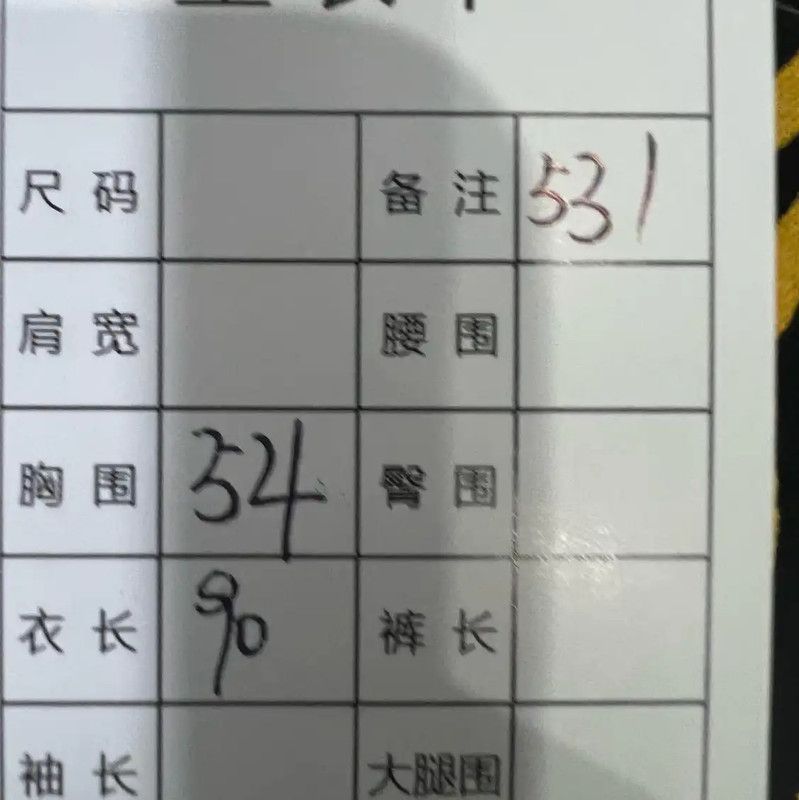 尺码 备注 531
肩宽 腰围
胸围 54 臀围
衣长 90 裤长
袖长 大腿围